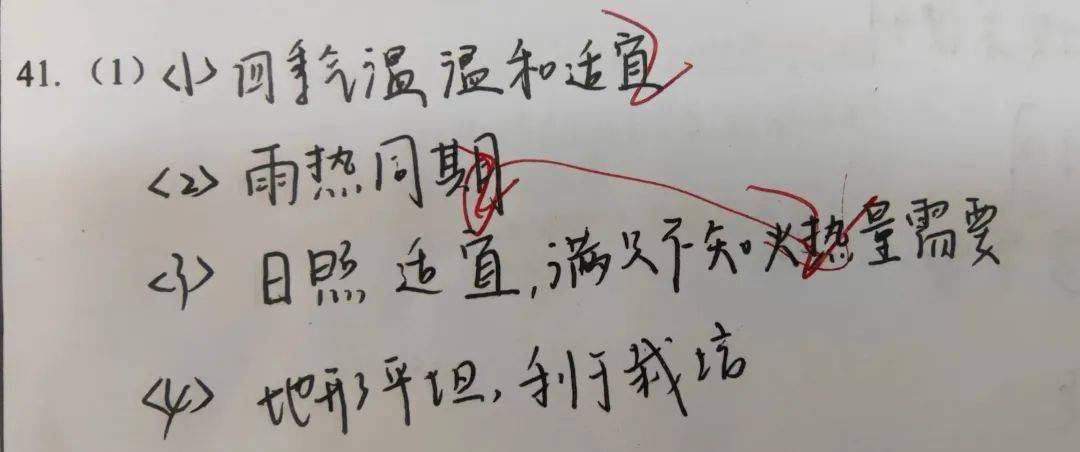 41. (1) <1> 四季气温温和适宜
<2> 雨热同期
<3> 日照适宜,满足不知火热量需要
<4> 地形平坦,利于栽培